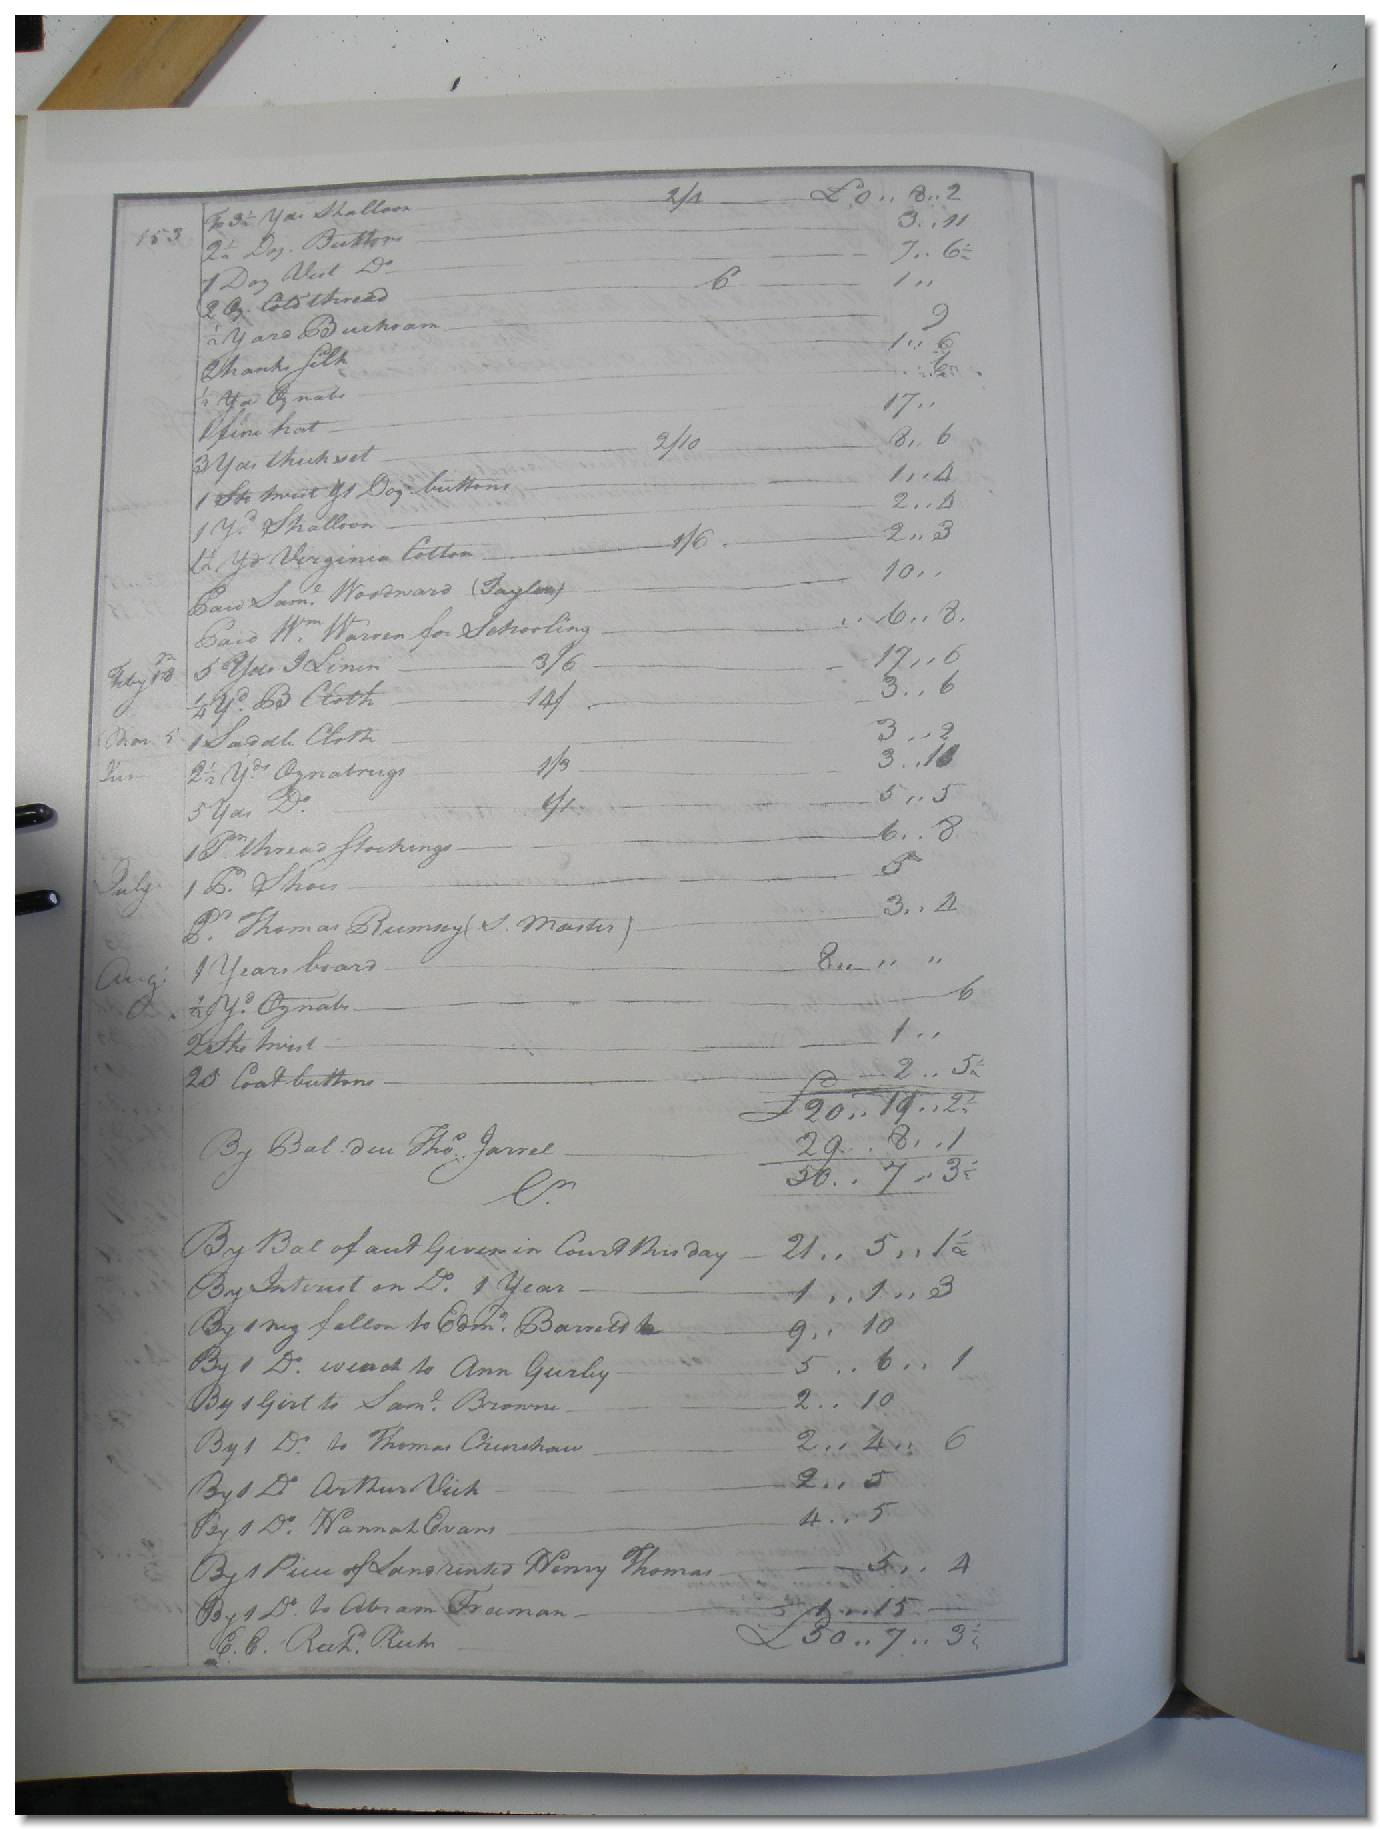 153 To 3½ Yds Shalloon 2/4 £0..8..2
2½ Doz. Buttons 3..11
1 Doz Vest Do 7..6½
2 oz. Cold thread 6 1..
½ Yard Buckram 9
2 hanks Silk 1..6
½ Yd Oznabs 6
1 fine hat 17..
3 Yds thickset 2/10 8..6
1 Stk twist & 1 Doz buttons 1..4
1 Yd. Shalloon 2..4
1½ Yd Virginia Cotton 1/6 2..3
Paid Saml. Woodward (Taylor) 10..
Paid Wm. Warren for Schooling 6..8
Feby 18 5 Yds I Linen 3/6 17..6
¼ Yd. B Cloth 14/ 3..6
Mar 5 1 Saddle Cloth 3..2
2½ Yds Oznabrugs 1/3
5 Yds Do. 5..5
1 Pr thread Stockings 6..8
July 1 Pr. Shoes 5
Pd. Thomas Rumsey (S. Master) 3..4
Aug: 1 Years board 8.. " "
½ Yd. Oznabs 6
2 Stks twist 1..
20 Coat buttons 2..5½
£20..19..2½
By Bal. due Tho. Jarrel 29..8..1
50..7..3½
Cr
By Bal of acct Given in Court this day 21..5..1½
By Interest on Do. 1 Year 1..1..3
By 1 neg fellow to Edmd. Barrett 9..10
By 1 Do. wench to Ann Gurley 5..6..1
By 1 Girl to Saml. Browne 2..10
By 1 Do. to Thomas Crenshaw 2..4..6
By 1 Do Arthur Vick 2..5
By 1 Do. Hannah Evans 4..5
By 1 Piece of Land rented Henry Thomas 5..4
By 1 Do. to Abram Freeman 1..15
E. E. Richd. Ricks £50..7..3½